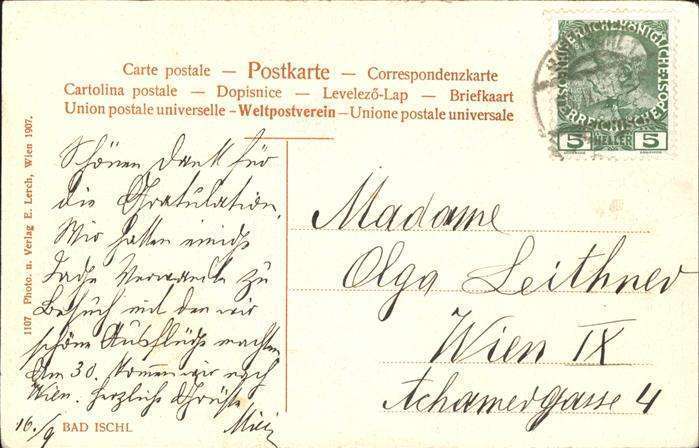 Carte postale — Postkarte — Correspondenzkarte
Cartolina postale — Dopisnice — Levelező-Lap — Briefkaart
Union postale universelle – Weltpostverein – Unione postale universale
5 HELLER 5
1107 Photo. u. Verlag E. Lerch, Wien 1907.
Schönen Dank für
die Gratulation.
Wir hatten einige
Tage Verwandte zu
Besuch mit den wir
schöne Ausflüge machten
Am 30. kommen wir nach
Wien. Herzliche Grüsse
Mizi
16./9
BAD ISCHL
Madame
Olga Leithner
Wien IX
Achamergasse 4